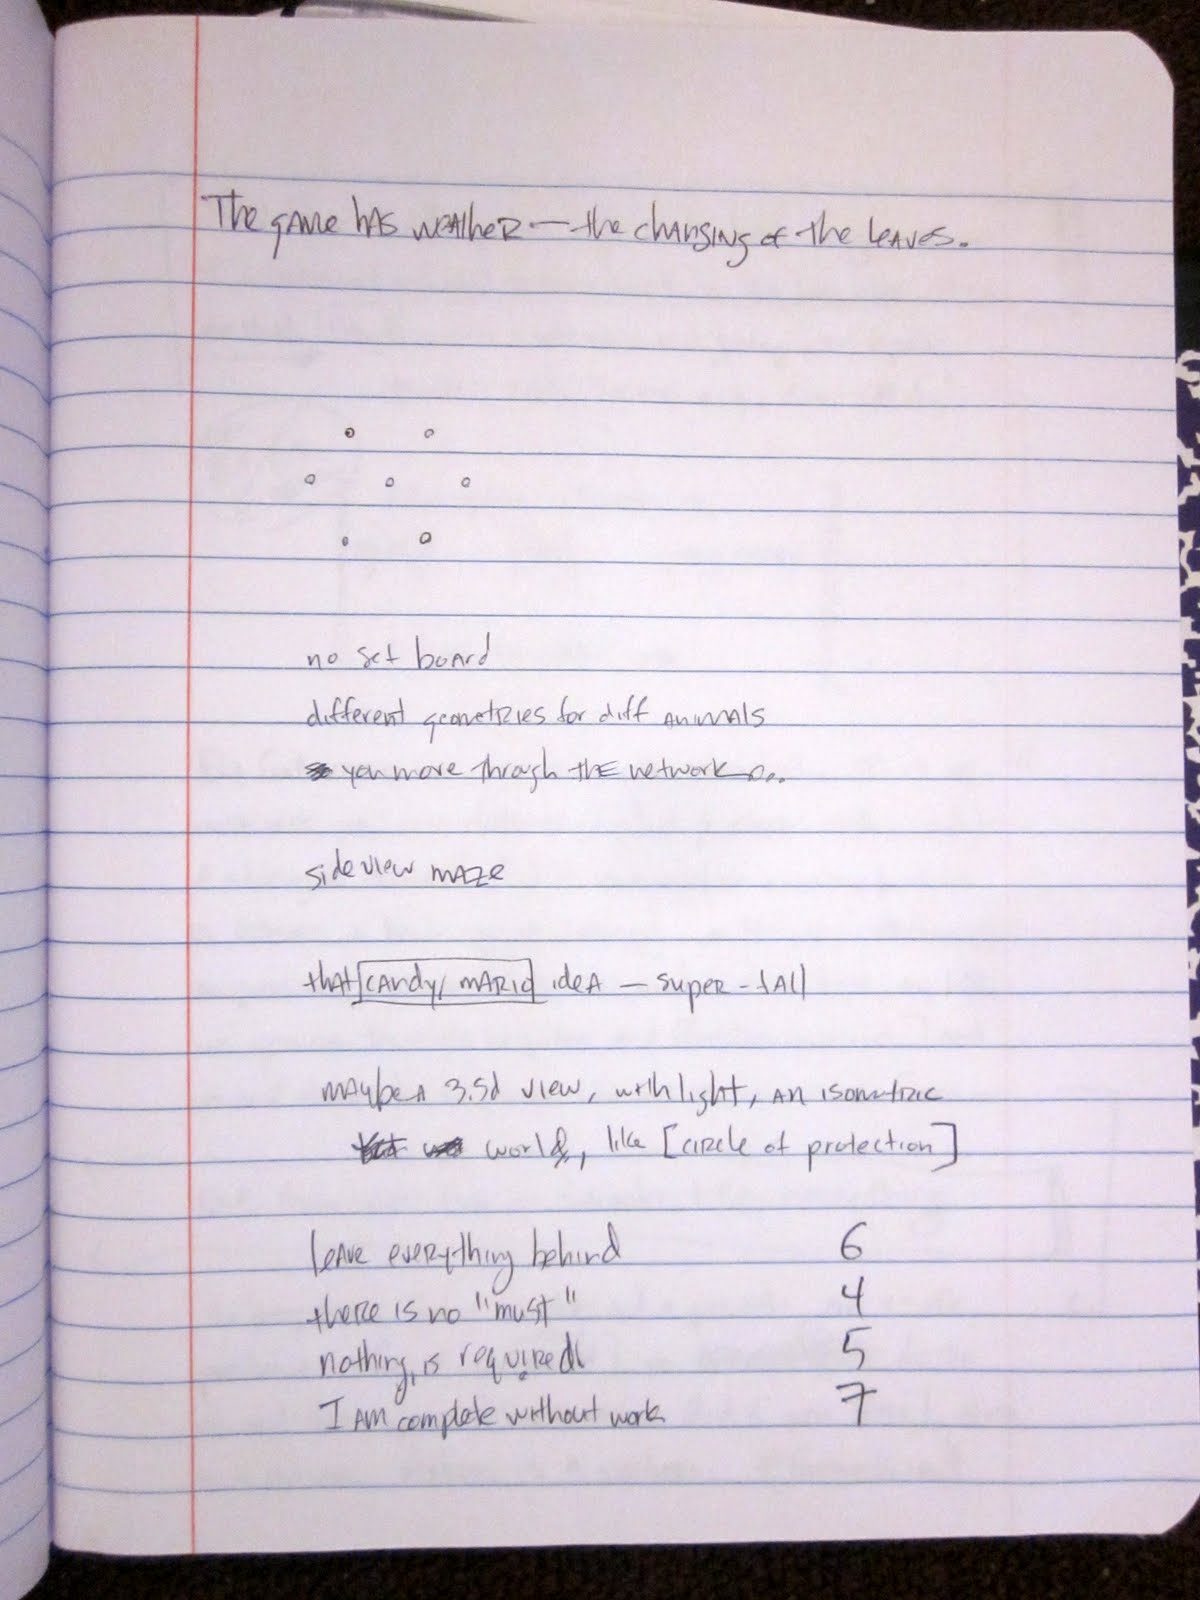 The game has weather — the changing of the leaves.
no set board
different geometries for diff animals
you move through the network...
side view maze
that candy/mario idea — super-tall
maybe a 3.5d view, with light, an isometric
world, like [circle of protection]
leave everything behind 6
there is no "must" 4
nothing is required 5
I am complete without work 7